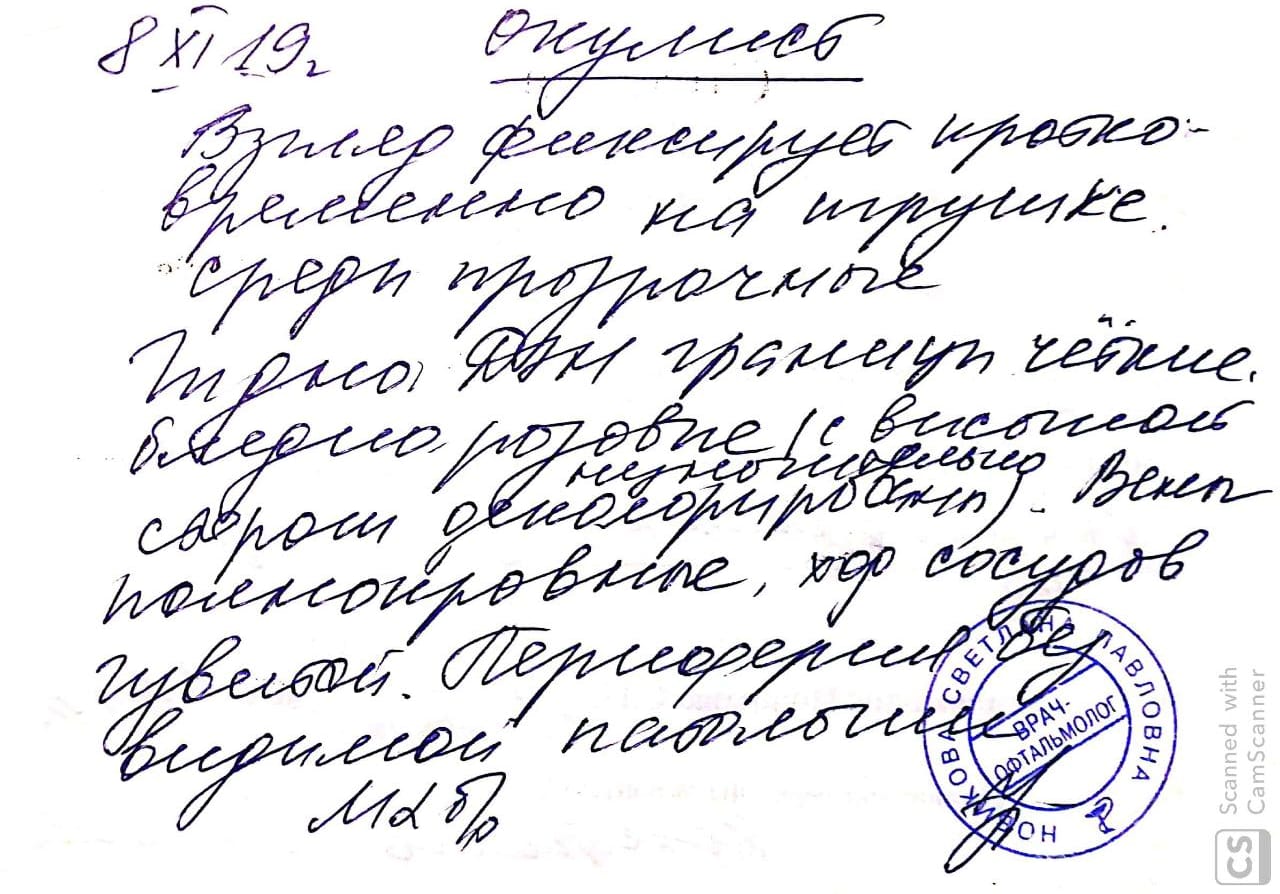 8 XI 19г Окулист
Взгляд фиксирует кратко-
временно на игрушке.
среды прозрачные
Гл дно ДЗН границы чёткие.
бледно розовые (с височной
незначительно
стороны деколорированы). Вены
полнокровные, ход сосудов
извитой. Периферия без
видимой патологии
НОВИКОВА СВЕТЛАНА ПАВЛОВНА
ВРАЧ-
ОФТАЛЬМОЛОГ
Scanned with
CamScanner
CS